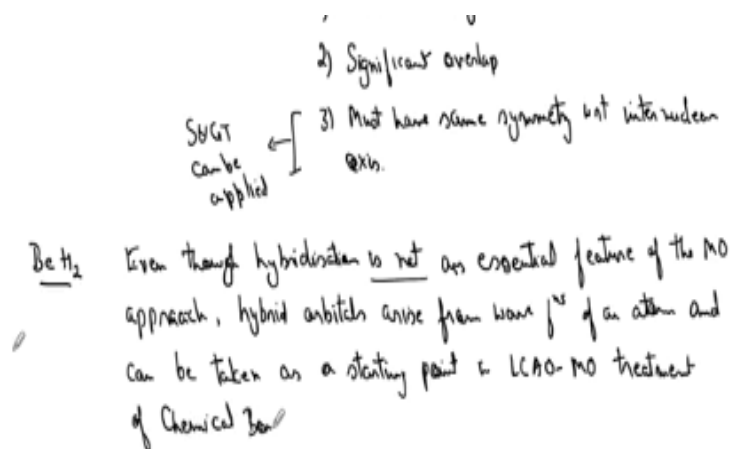 2) Significant overlap
3) Must have same symmetry wrt internuclear
axis.
S&GT
can be
applied
BeH₂ Even though hybridisation is not an essential feature of the MO
approach, hybrid orbitals arise from wave fⁿˢ of an atom and
can be taken as a starting point in LCAO-MO treatment
of Chemical Bon